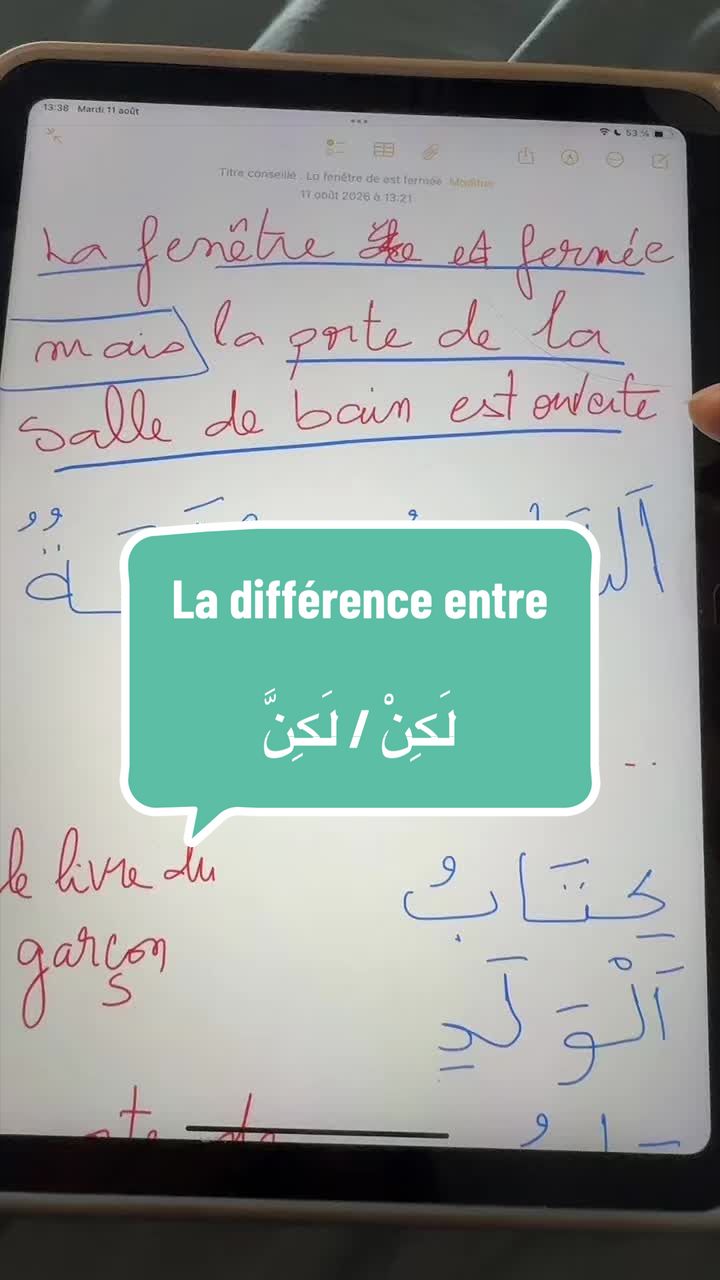 13:38 Mardi 11 août
53 %
Titre conseillé : La fenêtre de est fermée Modifier
11 août 2026 à 13:21
La fenêtre est fermée
mais la porte de la
salle de bain est ouverte
La différence entre
لَكِنْ / لَكِنَّ
le livre du
garçon
s
كِتَابُ
اَلْوَلَدِ